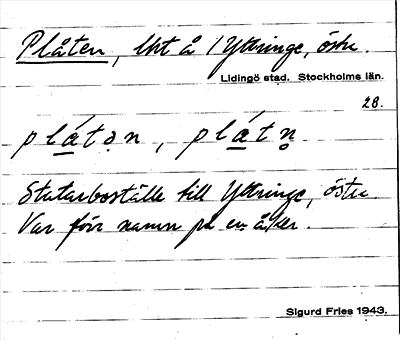 Plåten, lht å 1 Yttringe, östr.
Lidingö stad. Stockholms län.
28.
plá̱tən, plá̱tn̥
Statarboställe till Yttringe, östr.
Var förr namn på en åker.
Sigurd Fries 1943.